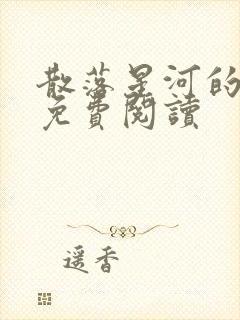 散落星河的
免費閱讀
遥香